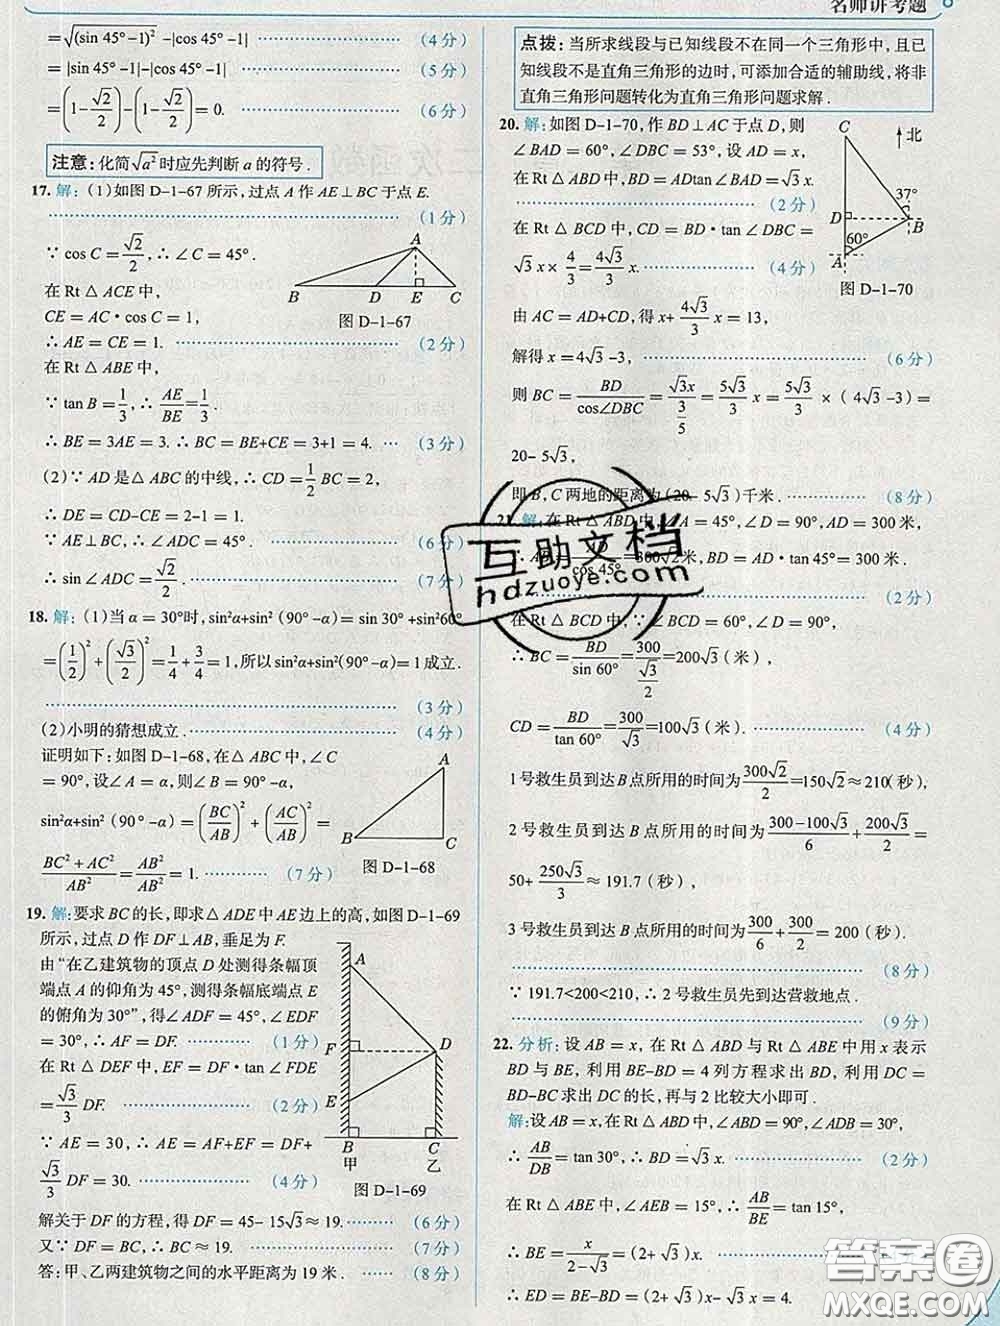 名师讲考题
=√(sin 45°-1)² -|cos 45°-1| (4分)
=|sin 45°-1|-|cos 45°-1| (5分)
=(1-√2/2)-(1-√2/2)=0. (6分)
注意：化简√a²时应先判断 a 的符号.
17. 解：(1)如图 D-1-67 所示，过点 A 作 AE⊥BC 于点 E.
(1分)
∵ cos C=√2/2，∴ ∠C=45°.
在 Rt△ACE 中，
CE=AC·cos C=1，
∴ AE=CE=1. (2分)
在 Rt△ABE 中，
∵ tan B=1/3，∴ AE/BE=1/3.
∴ BE=3AE=3. ∴ BC=BE+CE=3+1=4. (3分)
A
B D E C
图 D-1-67
(2)∵ AD 是△ABC 的中线，∴ CD=1/2 BC=2，
∴ DE=CD-CE=2-1=1.
∵ AE⊥BC，∴ ∠ADC=45°. (6分)
∴ sin∠ADC=√2/2. (7分)
18. 解：(1)当 α=30°时，sin²α+sin²(90°-α)=sin 30°+sin²60°
=(1/2)²+(√3/2)²=1/4+3/4=1，所以 sin²α+sin²(90°-α)=1 成立.
(3分)
(2)小明的猜想成立. (4分)
证明如下：如图 D-1-68，在△ABC 中，∠C
=90°，设∠A=α，则∠B=90°-α，
sin²α+sin²(90°-α)=(BC/AB)²+(AC/AB)²
=(BC²+AC²)/AB²=AB²/AB²=1. (7分)
A
B C
图 D-1-68
19. 解：要求 BC 的长，即求△ADE 中 AE 边上的高，如图 D-1-69
所示，过点 D 作 DF⊥AB，垂足为 F.
由“在乙建筑物的顶点 D 处测得条幅顶
端点 A 的仰角为 45°，测得条幅底端点 E
的俯角为 30°”，得∠ADF=45°，∠EDF
=30°，∴ AF=DF. (1分)
在 Rt△DEF 中，EF=DF·tan∠FDE
=√3/3 DF. (2分)
∵ AE=30，∴ AE=AF+EF=DF+
√3/3 DF=30. (4分)
A
F D
E
B C
甲 乙
图 D-1-69
解关于 DF 的方程，得 DF=45-15√3≈19. (6分)
又∵ DF=BC，∴ BC≈19. (7分)
答：甲、乙两建筑物之间的水平距离为 19 米. (8分)
点拨：当所求线段与已知线段不在同一个三角形中，且已
知线段不是直角三角形的边时，可添加合适的辅助线，将非
直角三角形问题转化为直角三角形问题求解.
20. 解：如图 D-1-70，作 BD⊥AC 于点 D，则
∠BAD=60°，∠DBC=53°，设 AD=x，
在 Rt△ABD 中，BD=ADtan∠BAD=√3 x.
(2分)
在 Rt△BCD 中，CD=BD·tan∠DBC=
√3 x×4/3=4√3/3 x. (4分)
C 北
37°
D B
60°
A
图 D-1-70
由 AC=AD+CD，得 x+4√3/3 x=13，
解得 x=4√3-3， (6分)
则 BC=BD/cos∠DBC=√3x/(3/5)=5√3/3 x=5√3/3×(4√3-3)=
20-5√3，
即 B，C 两地的距离为(20-5√3)千米. (8分)
21. 解：在 Rt△ABD 中，∠A=45°，∠D=90°，AD=300 米，
∴ AB=AD/cos 45°=300√2 米，BD=AD·tan 45°=300 米.
(2分)
在 Rt△BCD 中，∵ ∠BCD=60°，∠D=90°，
∴ BC=BD/sin 60°=300/(√3/2)=200√3(米)，
CD=BD/tan 60°=300/√3=100√3(米). (4分)
1 号救生员到达 B 点所用的时间为300√2/2=150√2≈210(秒)，
2 号救生员到达 B 点所用的时间为(300-100√3)/6+200√3/2=
50+250√3/3≈191.7(秒)，
3 号救生员到达 B 点所用的时间为300/6+300/2=200(秒).
(8分)
∵ 191.7<200<210，∴ 2 号救生员先到达营救地点.
(9分)
22. 分析：设 AB=x，在 Rt△ABD 与 Rt△ABE 中用 x 表示
BD 与 BE，利用 BE-BD=4 列方程求出 BD，再利用 DC=
BD-BC 求出 DC 的长，再与 2 比较大小即可.
解：设 AB=x，在 Rt△ABD 中，∠ABD=90°，∠ADB=30°，
∴ AB/DB=tan 30°，∴ BD=√3 x. (2分)
在 Rt△ABE 中，∠ABE=90°，∠AEB=15°，∴ AB/BE=tan 15°，
∴ BE=x/(2-√3)=(2+√3)x.
∴ ED=BE-BD=(2+√3)x-√3 x=4.
互助文档
hdzuoye.com
答案圈
MXQE.COM